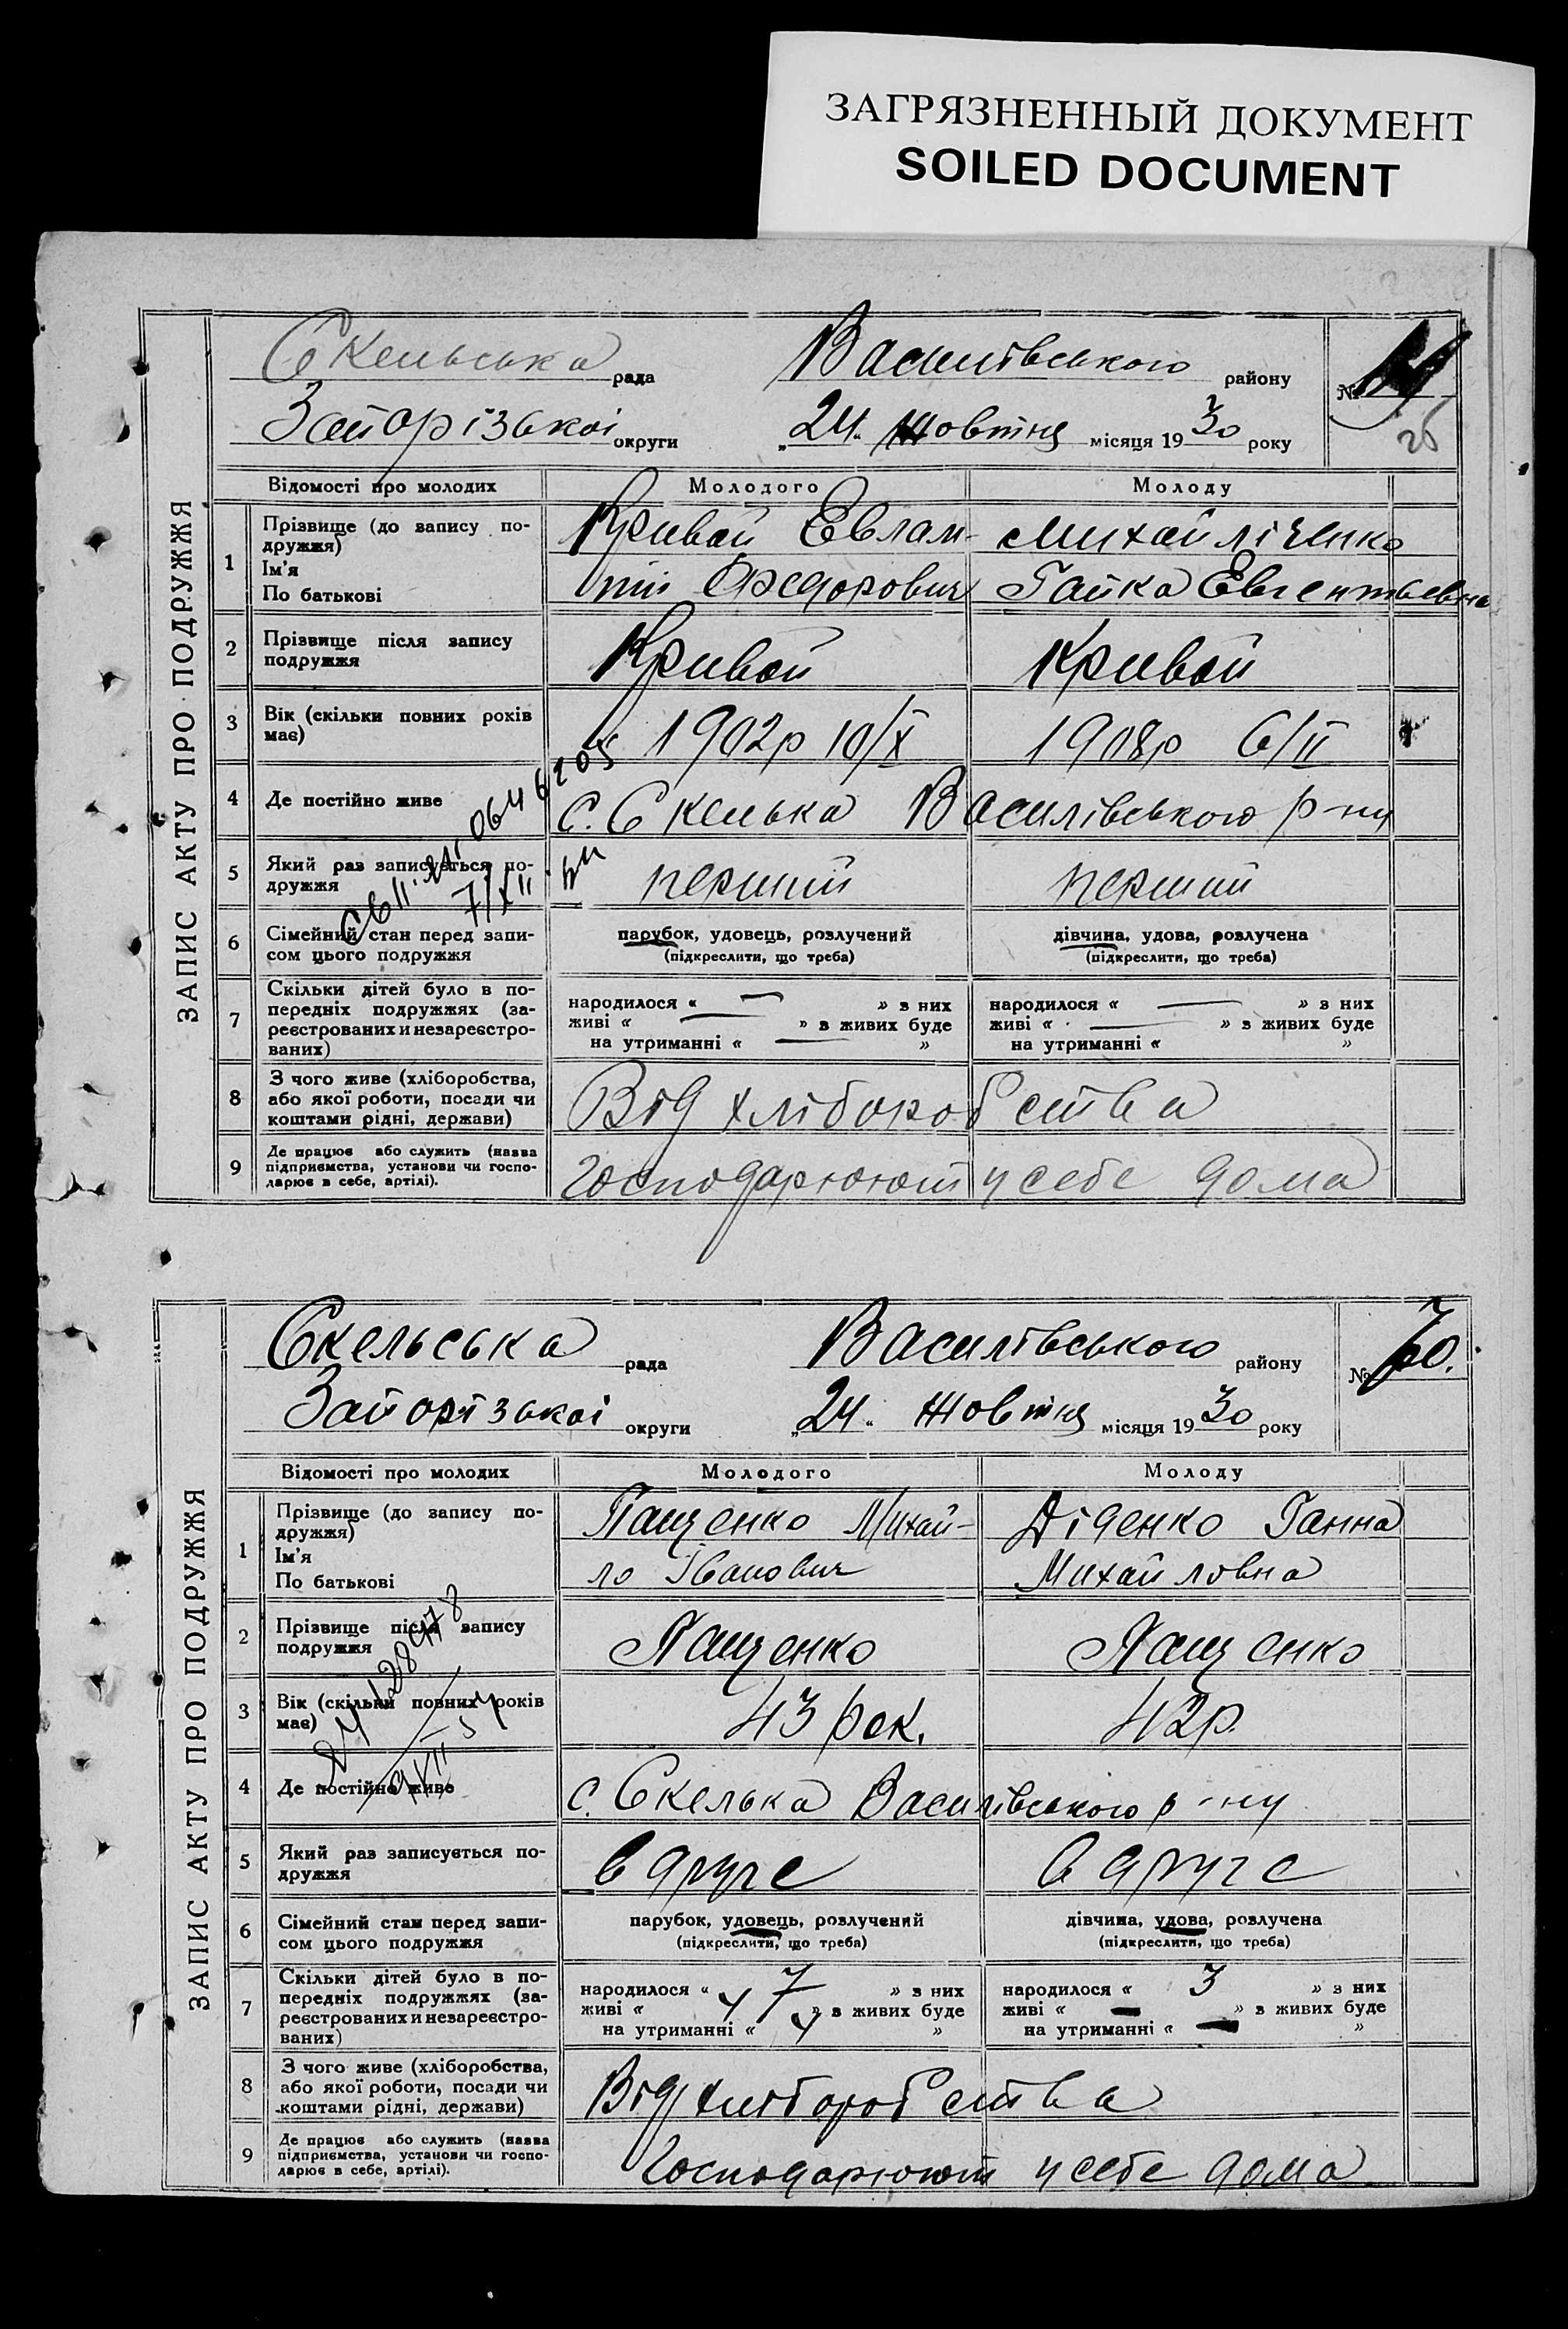 ЗАГРЯЗНЕННЫЙ ДОКУМЕНТ
SOILED DOCUMENT
ЗАПИС АКТУ ПРО ПОДРУЖЖЯ
Скельська рада Василівського району №
Запорізькоі округи „24“ Жовтня місяця 1930 року
Відомості про молодих Молодого Молоду
1 Прізвище (до запису по-
дружжя)
Ім'я
По батькові
Кривой Евлам-
пій Федорович
Михайліченко
Гапка Евгентьевна
2 Прізвище після запису
подружжя
Кривой Кривой
3 Вік (скільки повних років
має)
1902р 10/X 1908р 6/II
4 Де постійно живе с. Скелька Василівського р-ну
5 Який раз записується по-
дружжя
перший перший
6 Сімейний стан перед запи-
сом цього подружжя
парубок, удовець, розлучений
(підкреслити, що треба)
дівчина, удова, розлучена
(підкреслити, що треба)
7 Скільки дітей було в по-
передніх подружжях (за-
реєстрованих и незареєстро-
ваних)
народилося « — » з них
живі « — » з живих буде
на утриманні « — »
народилося « — » з них
живі « — » з живих буде
на утриманні « »
8 З чого живе (хліборобства,
або якої роботи, посади чи
коштами рідні, держави)
Від хліборобства
9 Де працює або служить (назва
підприємства, установи чи госпо-
дарює в себе, артілі).
Господарюют у себе дома
ЗАПИС АКТУ ПРО ПОДРУЖЖЯ
Скельська рада Василівського району № 70.
Запорізькоі округи „24“ Жовтня місяця 1930 року
Відомості про молодих Молодого Молоду
1 Прізвище (до запису по-
дружжя)
Ім'я
По батькові
Пащенко Михай-
ло Іванович
Діденко Ганна
Михайловна
2 Прізвище після запису
подружжя
Пащенко Пащенко
3 Вік (скільки повних років
має)
43 рок. 42р.
4 Де постійно живе с. Скелька Василівського р-ну
5 Який раз записується по-
дружжя
в друге в друге
6 Сімейний стан перед запи-
сом цього подружжя
парубок, удовець, розлучений
(підкреслити, що треба)
дівчина, удова, розлучена
(підкреслити, що треба)
7 Скільки дітей було в по-
передніх подружжях (за-
реєстрованих и незареєстро-
ваних)
народилося « 7 » з них
живі « 4 » з живих буде
на утриманні « 4 »
народилося « 3 » з них
живі « — » з живих буде
на утриманні « — »
8 З чого живе (хліборобства,
або якої роботи, посади чи
коштами рідні, держави)
Від хліборобства
9 Де працює або служить (назва
підприємства, установи чи госпо-
дарює в себе, артілі).
Господарюют у себе дома